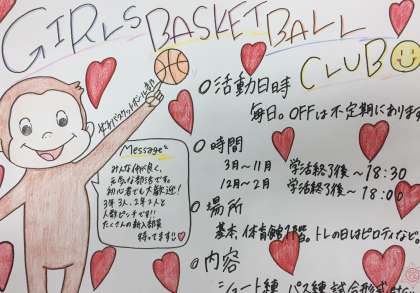 GIRLS BASKETBALL
CLUB
女子バスケットボール部
○活動日時
毎日。OFFは不定期にあります
○時間
3月～11月 学活終了後～18:30
12月～2月 学活終了後～18:00
○場所
基本、体育館1階。トレの日はピロティなど。
○内容
シュート練 パス練 試合形式 etc
Message
みんな仲が良く、
元気な部活です。
初心者でも大歓迎!
3年3人、2年2人と
人数ピンチです!!
たくさんの新入部員
待ってます!!